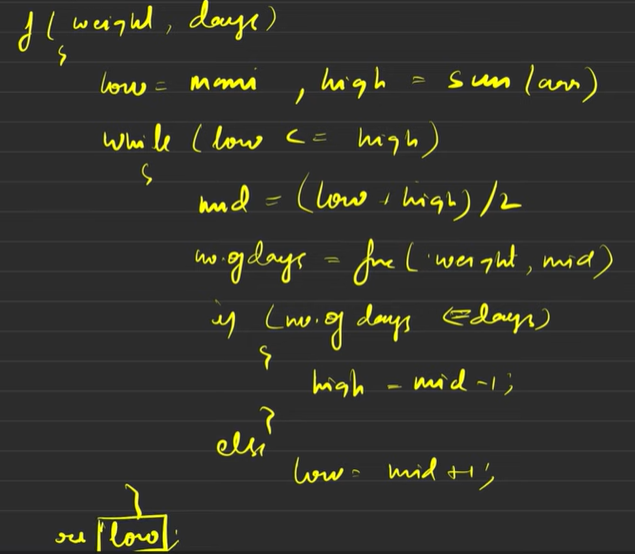 f( weight, days)
{
low = maxi , high = sum(arr)
while (low <= high)
{
mid = (low + high)/2
no.ofdays = fnc( weight, mid)
if (no. of days <= days)
{
high = mid -1;
}
else
low = mid +1;
}
ret low;